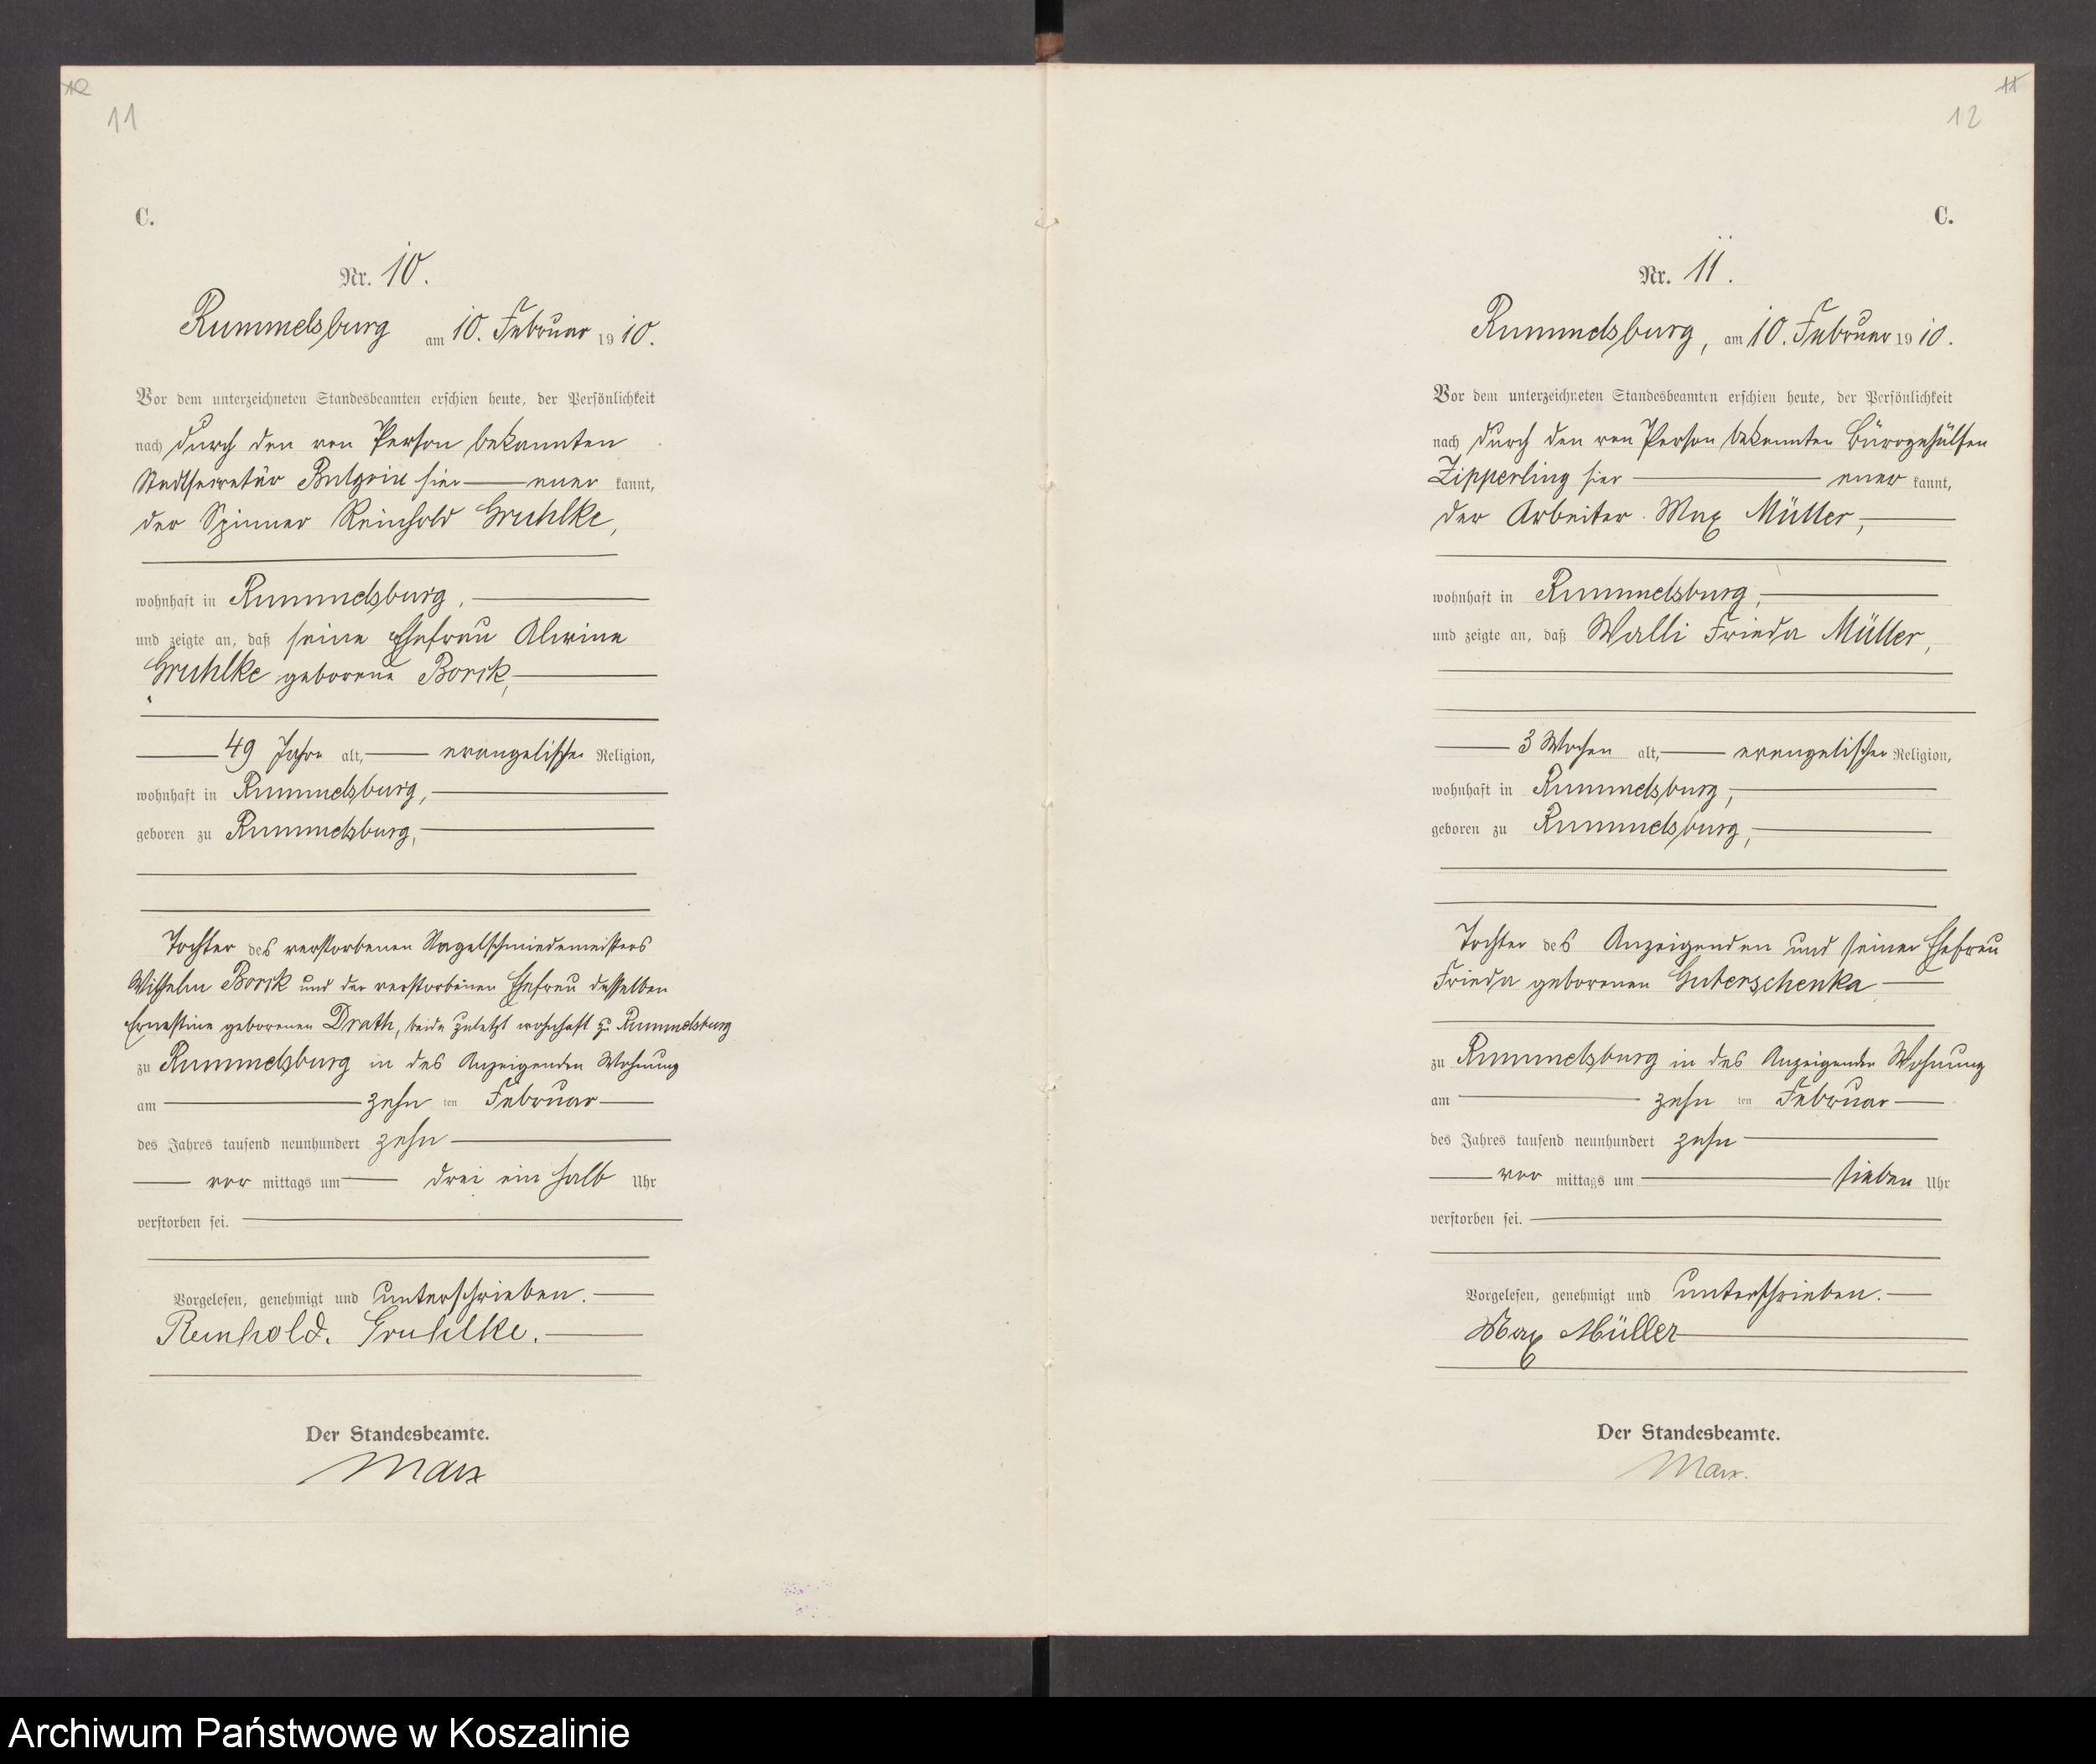 10
11
C.
Nr. 10.
Rummelsburg am 10. Februar 1910.
Vor dem unterzeichneten Standesbeamten erschien heute, der Persönlichkeit
nach durch den von Person bekannten
Stadtsecretär hier aner kannt,
der Spinner Reinhold Gruhlke,
wohnhaft in Rummelsburg,
und zeigte an, daß seine Ehefrau Alwine
Gruhlke geborene Borck,
49 Jahre alt, evangelischer Religion,
wohnhaft in Rummelsburg,
geboren zu Rummelsburg,
Tochter des verstorbenen Nagelschmiedemeisters
Wilhelm Borck und der verstorbenen Ehefrau desselben
Ernestine geborenen Drath, beide zuletzt wohnhaft zu Rummelsburg
zu Rummelsburg in des Anzeigenden Wohnung
am zehn ten Februar
des Jahres tausend neunhundert zehn
vor mittags um drei ein halb Uhr
verstorben sei.
Vorgelesen, genehmigt und unterschrieben.
Reinhold. Gruhlke.
Der Standesbeamte.
Marx
11
12
C.
Nr. 11.
Rummelsburg, am 10. Februar 1910.
Vor dem unterzeichneten Standesbeamten erschien heute, der Persönlichkeit
nach durch den von Person bekannten Bürogehülfen
Zipperling hier aner kannt,
der Arbeiter Max Müller,
wohnhaft in Rummelsburg,
und zeigte an, daß Walli Frieda Müller,
3 Wochen alt, evangelischer Religion,
wohnhaft in Rummelsburg,
geboren zu Rummelsburg,
Tochter des Anzeigenden und seiner Ehefrau
Frieda geborenen Guterschenka
zu Rummelsburg in des Anzeigenden Wohnung
am zehn ten Februar
des Jahres tausend neunhundert zehn
vor mittags um sieben Uhr
verstorben sei.
Vorgelesen, genehmigt und unterschrieben.
Max Müller
Der Standesbeamte.
Marx.
Archiwum Państwowe w Koszalinie